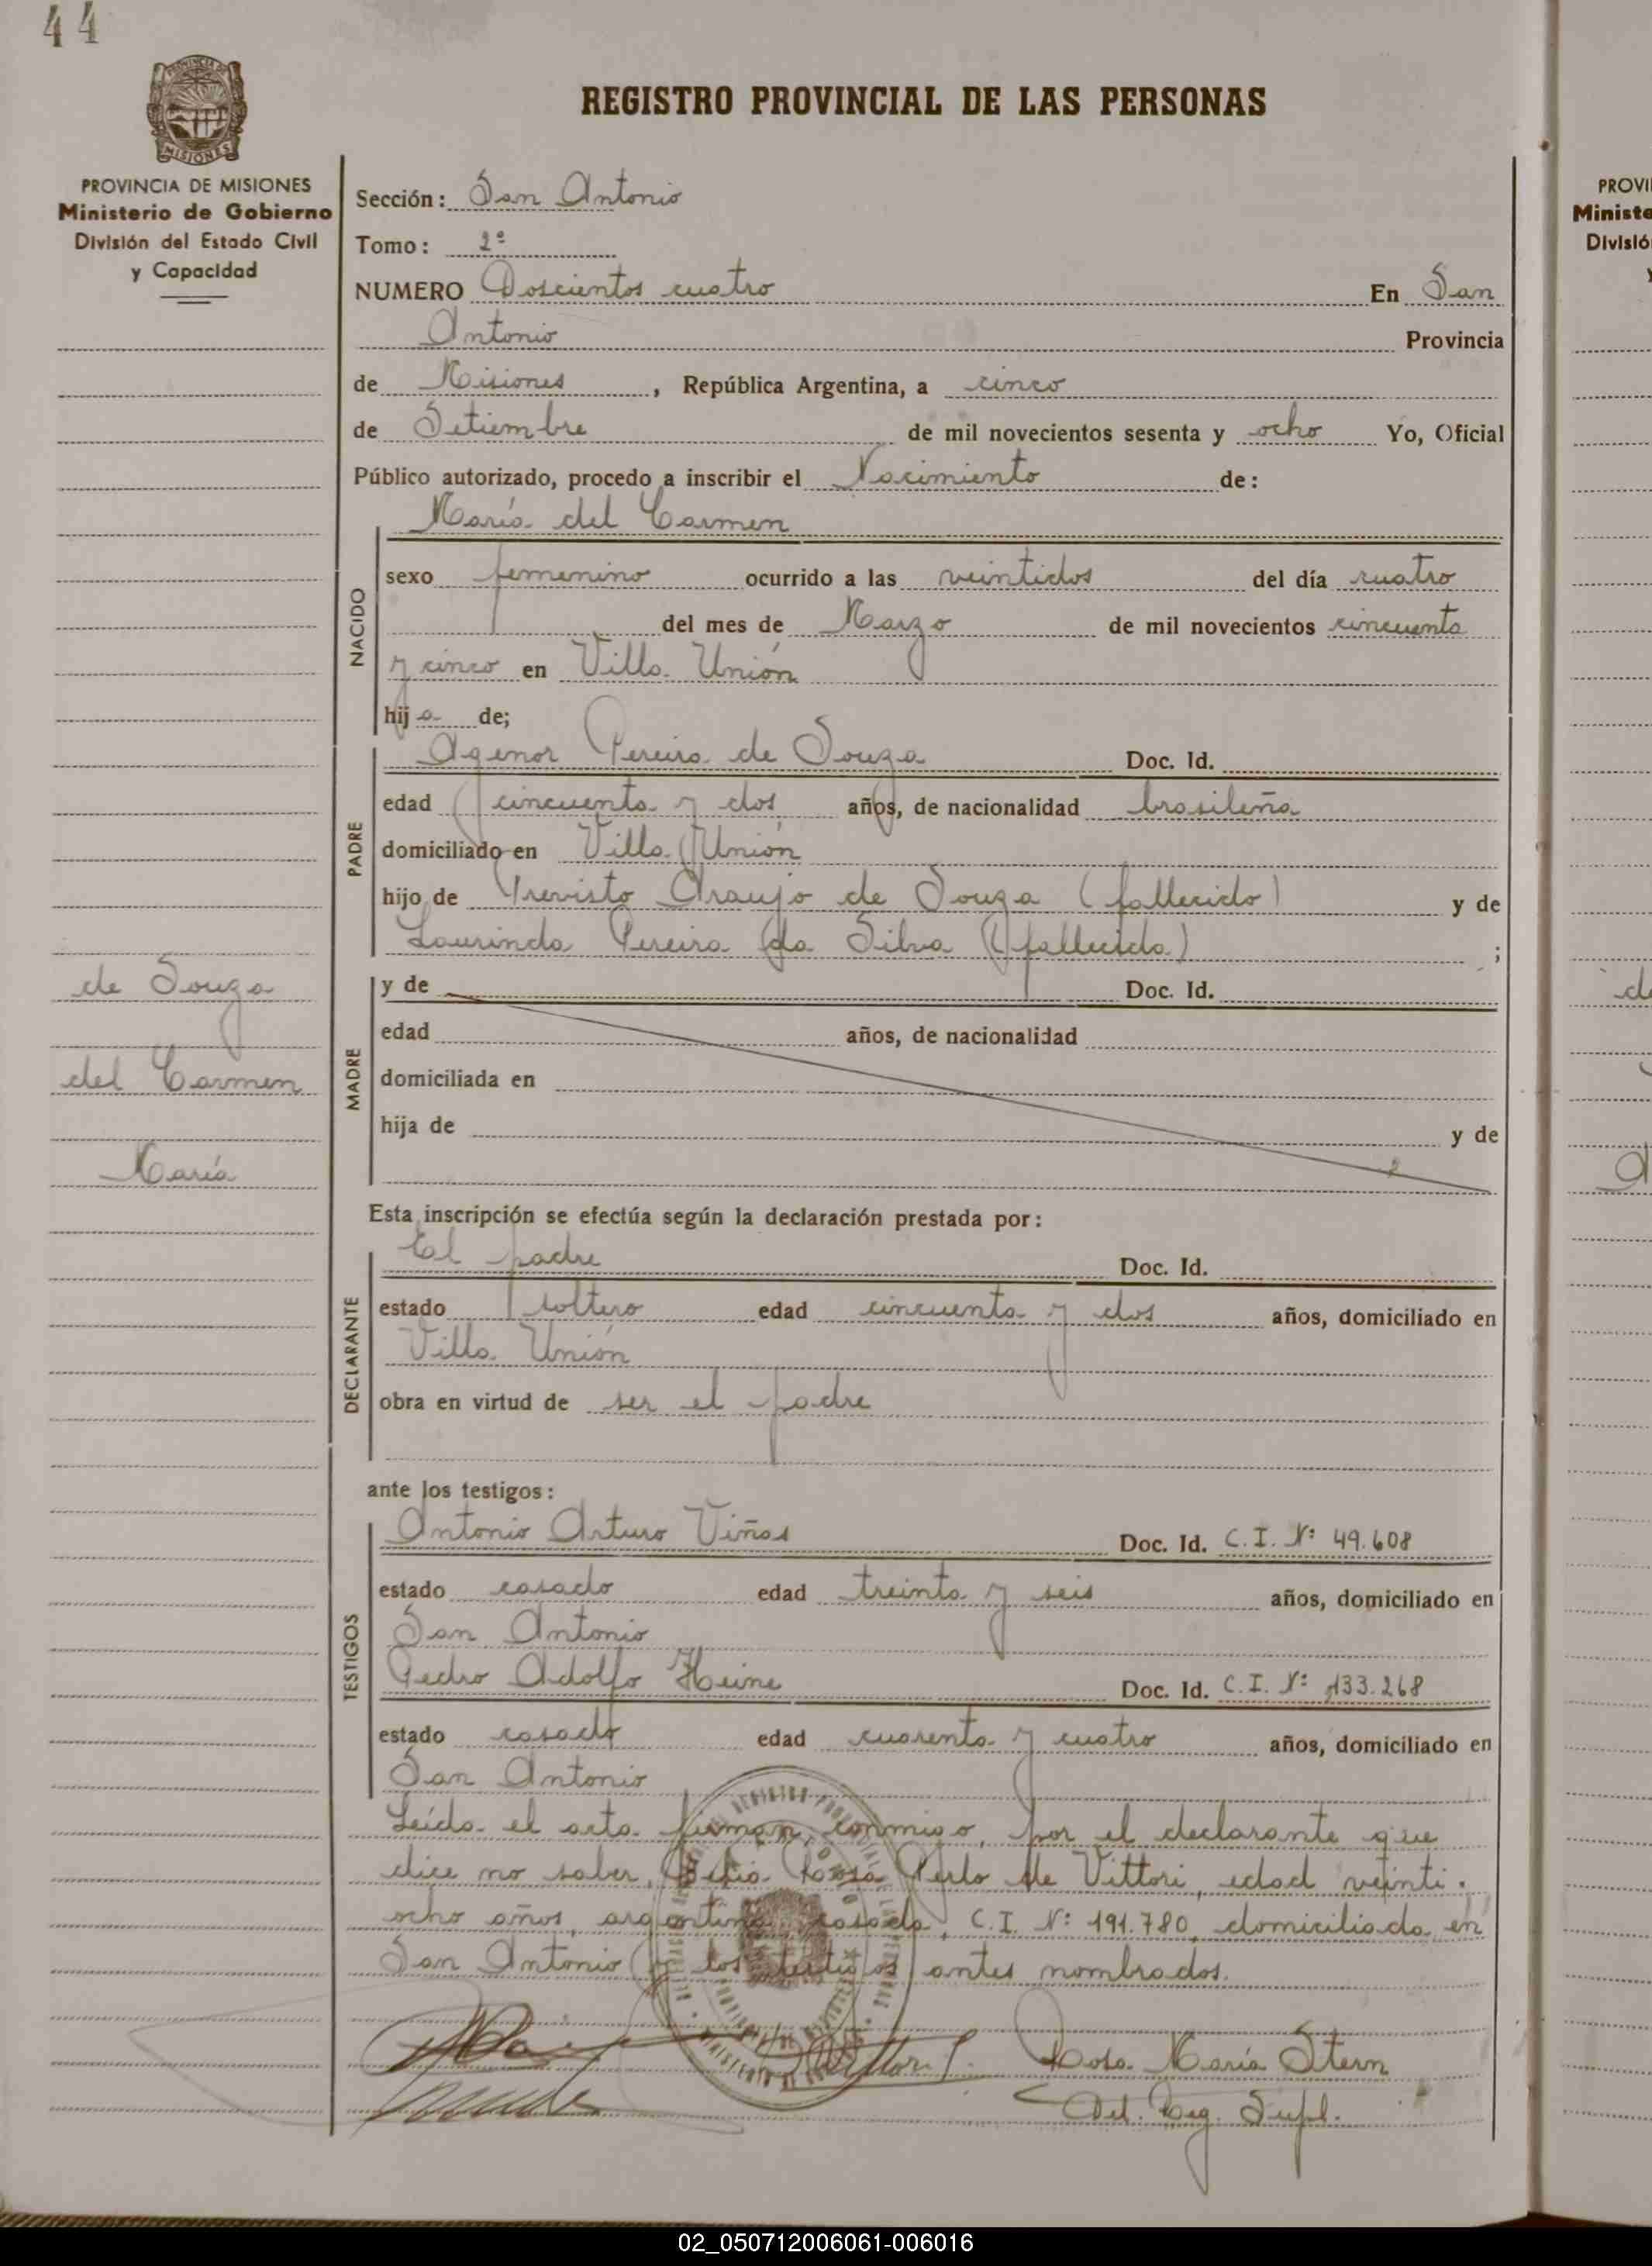 44
PROVINCIA DE MISIONES
Ministerio de Gobierno
División del Estado Civil
y Capacidad
de Souza
del Carmen
María
REGISTRO PROVINCIAL DE LAS PERSONAS
Sección: San Antonio
Tomo: 2º
NUMERO Doscientos cuatro En San
Antonio Provincia
de Misiones, República Argentina, a cinco
de Setiembre de mil novecientos sesenta y ocho Yo, Oficial
Público autorizado, procedo a inscribir el Nacimiento de:
NACIDO
María del Carmen
sexo femenino ocurrido a las veintidos del día cuatro
del mes de Marzo de mil novecientos cincuenta
y cinco en Villa Unión
hija de;
PADRE
Agenor Pereira de Souza Doc. Id.
edad cincuenta y dos años, de nacionalidad brasileña
domiciliado en Villa Unión
hijo de Previsto Araujo de Souza (fallecido) y de
Laurinda Pereira da Silva (fallecida) ;
MADRE
y de Doc. Id.
edad años, de nacionalidad
domiciliada en
hija de y de
Esta inscripción se efectúa según la declaración prestada por:
DECLARANTE
El padre Doc. Id.
estado soltero edad cincuenta y dos años, domiciliado en
Villa Unión
obra en virtud de ser el padre
ante los testigos:
TESTIGOS
Antonio Arturo Viñas Doc. Id. C.I. Nº 49.608
estado casado edad treinta y seis años, domiciliado en
San Antonio
Pedro Adolfo Heine Doc. Id. C.I. Nº 133.268
estado casado edad cuarenta y cuatro años, domiciliado en
San Antonio
Leída el acta firman conmigo, por el declarante que
dice no saber, Rosa de Vittori, edad veinti-
ocho años, argentina, casada, C.I. Nº 191.780, domiciliada en
San Antonio y los testigos antes nombrados.
Rosa María Stern
Del. Reg. Supl.
PROVI
Ministe
Divisió
02_050712006061-006016